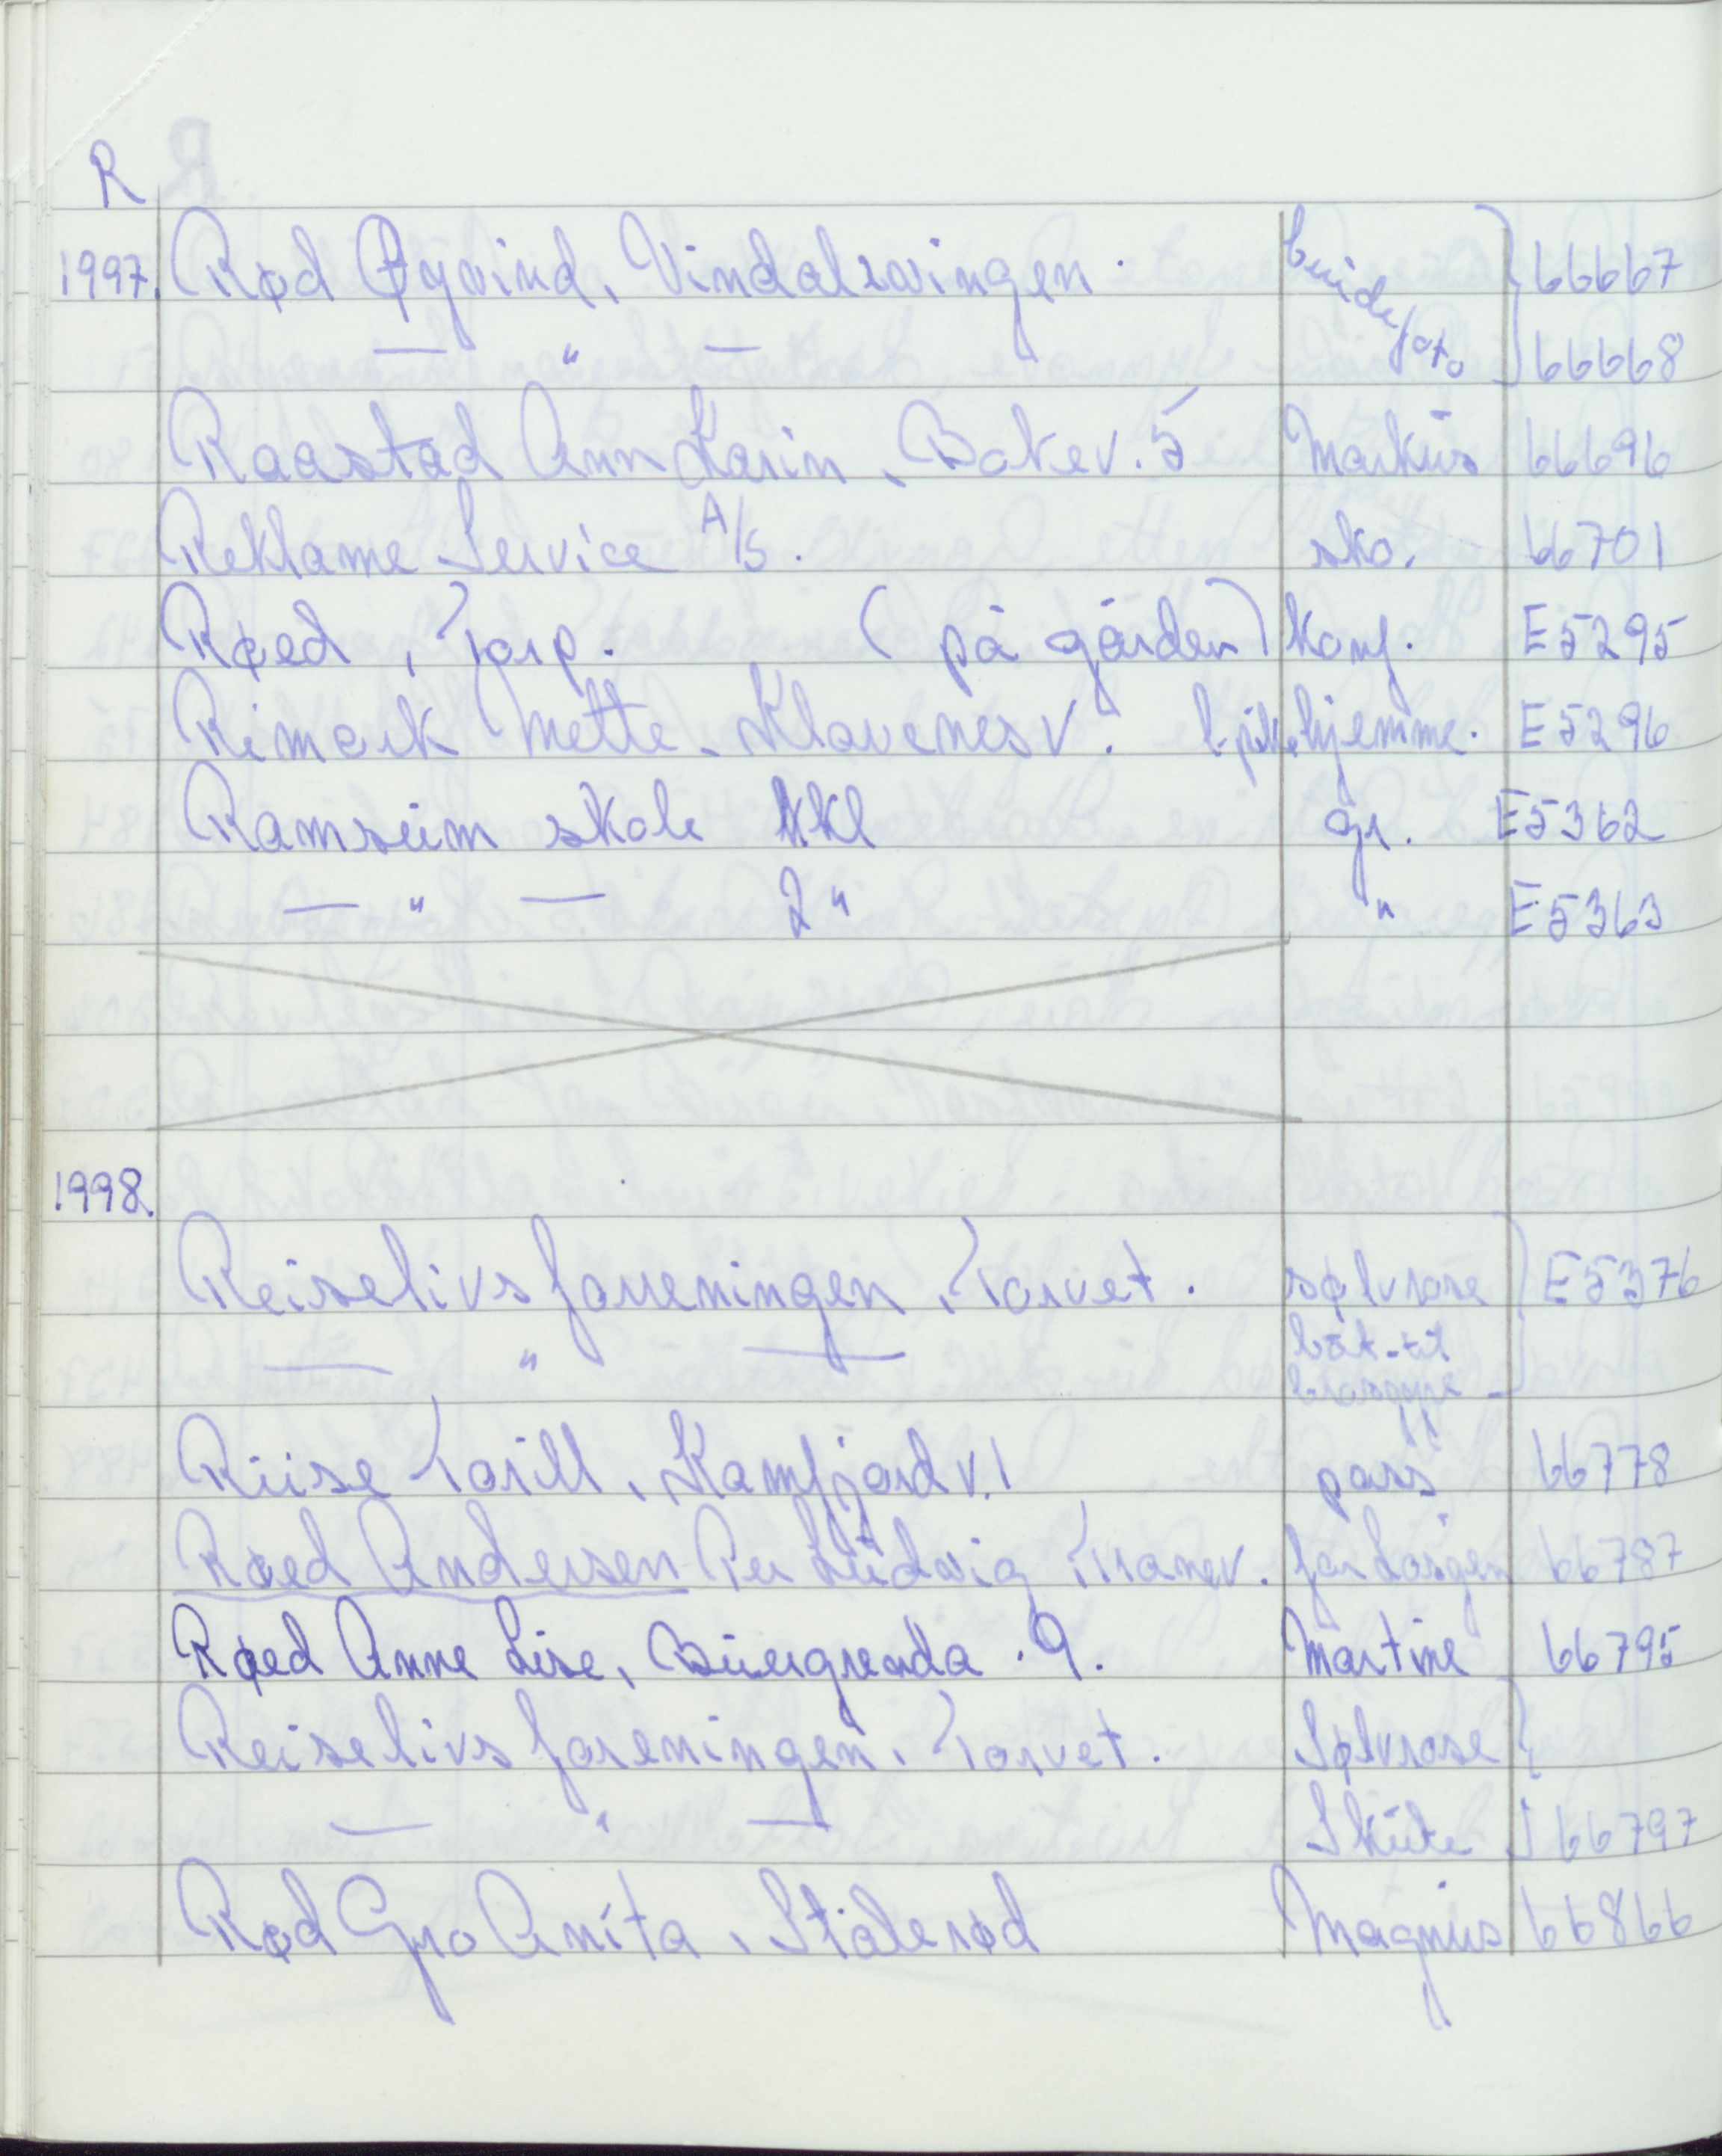 R
1997. Rød Øyvind, Vindalsvingen. brudefoto 66667
— " — 66668
Raastad Ann Karin, Bakev. 5 Markus 66696
Reklame Service A/S. sko. 66701
Røed, Torp. (på gården) konf. E5295
Rimark Mette. Klavenesv. hjemme. E5296
Ramsum skole 1kl gr. E5362
— " — 2 " " E5363
1998.
Reiselivsforreningen, Torvet. sølvrose E5376
— " — båt-til
Riise Torill, Kamfjordv. 1 pass 66778
Røed Andersen Per Ludvig Tranev. 66787
Røed Anne Lise, Buergrenda. 9. Martine 66795
Reiselivsforeningen, Torvet. Sølvrose
— " — Skute 66797
Rød Gro Anita, Stålerød Magnus 66866